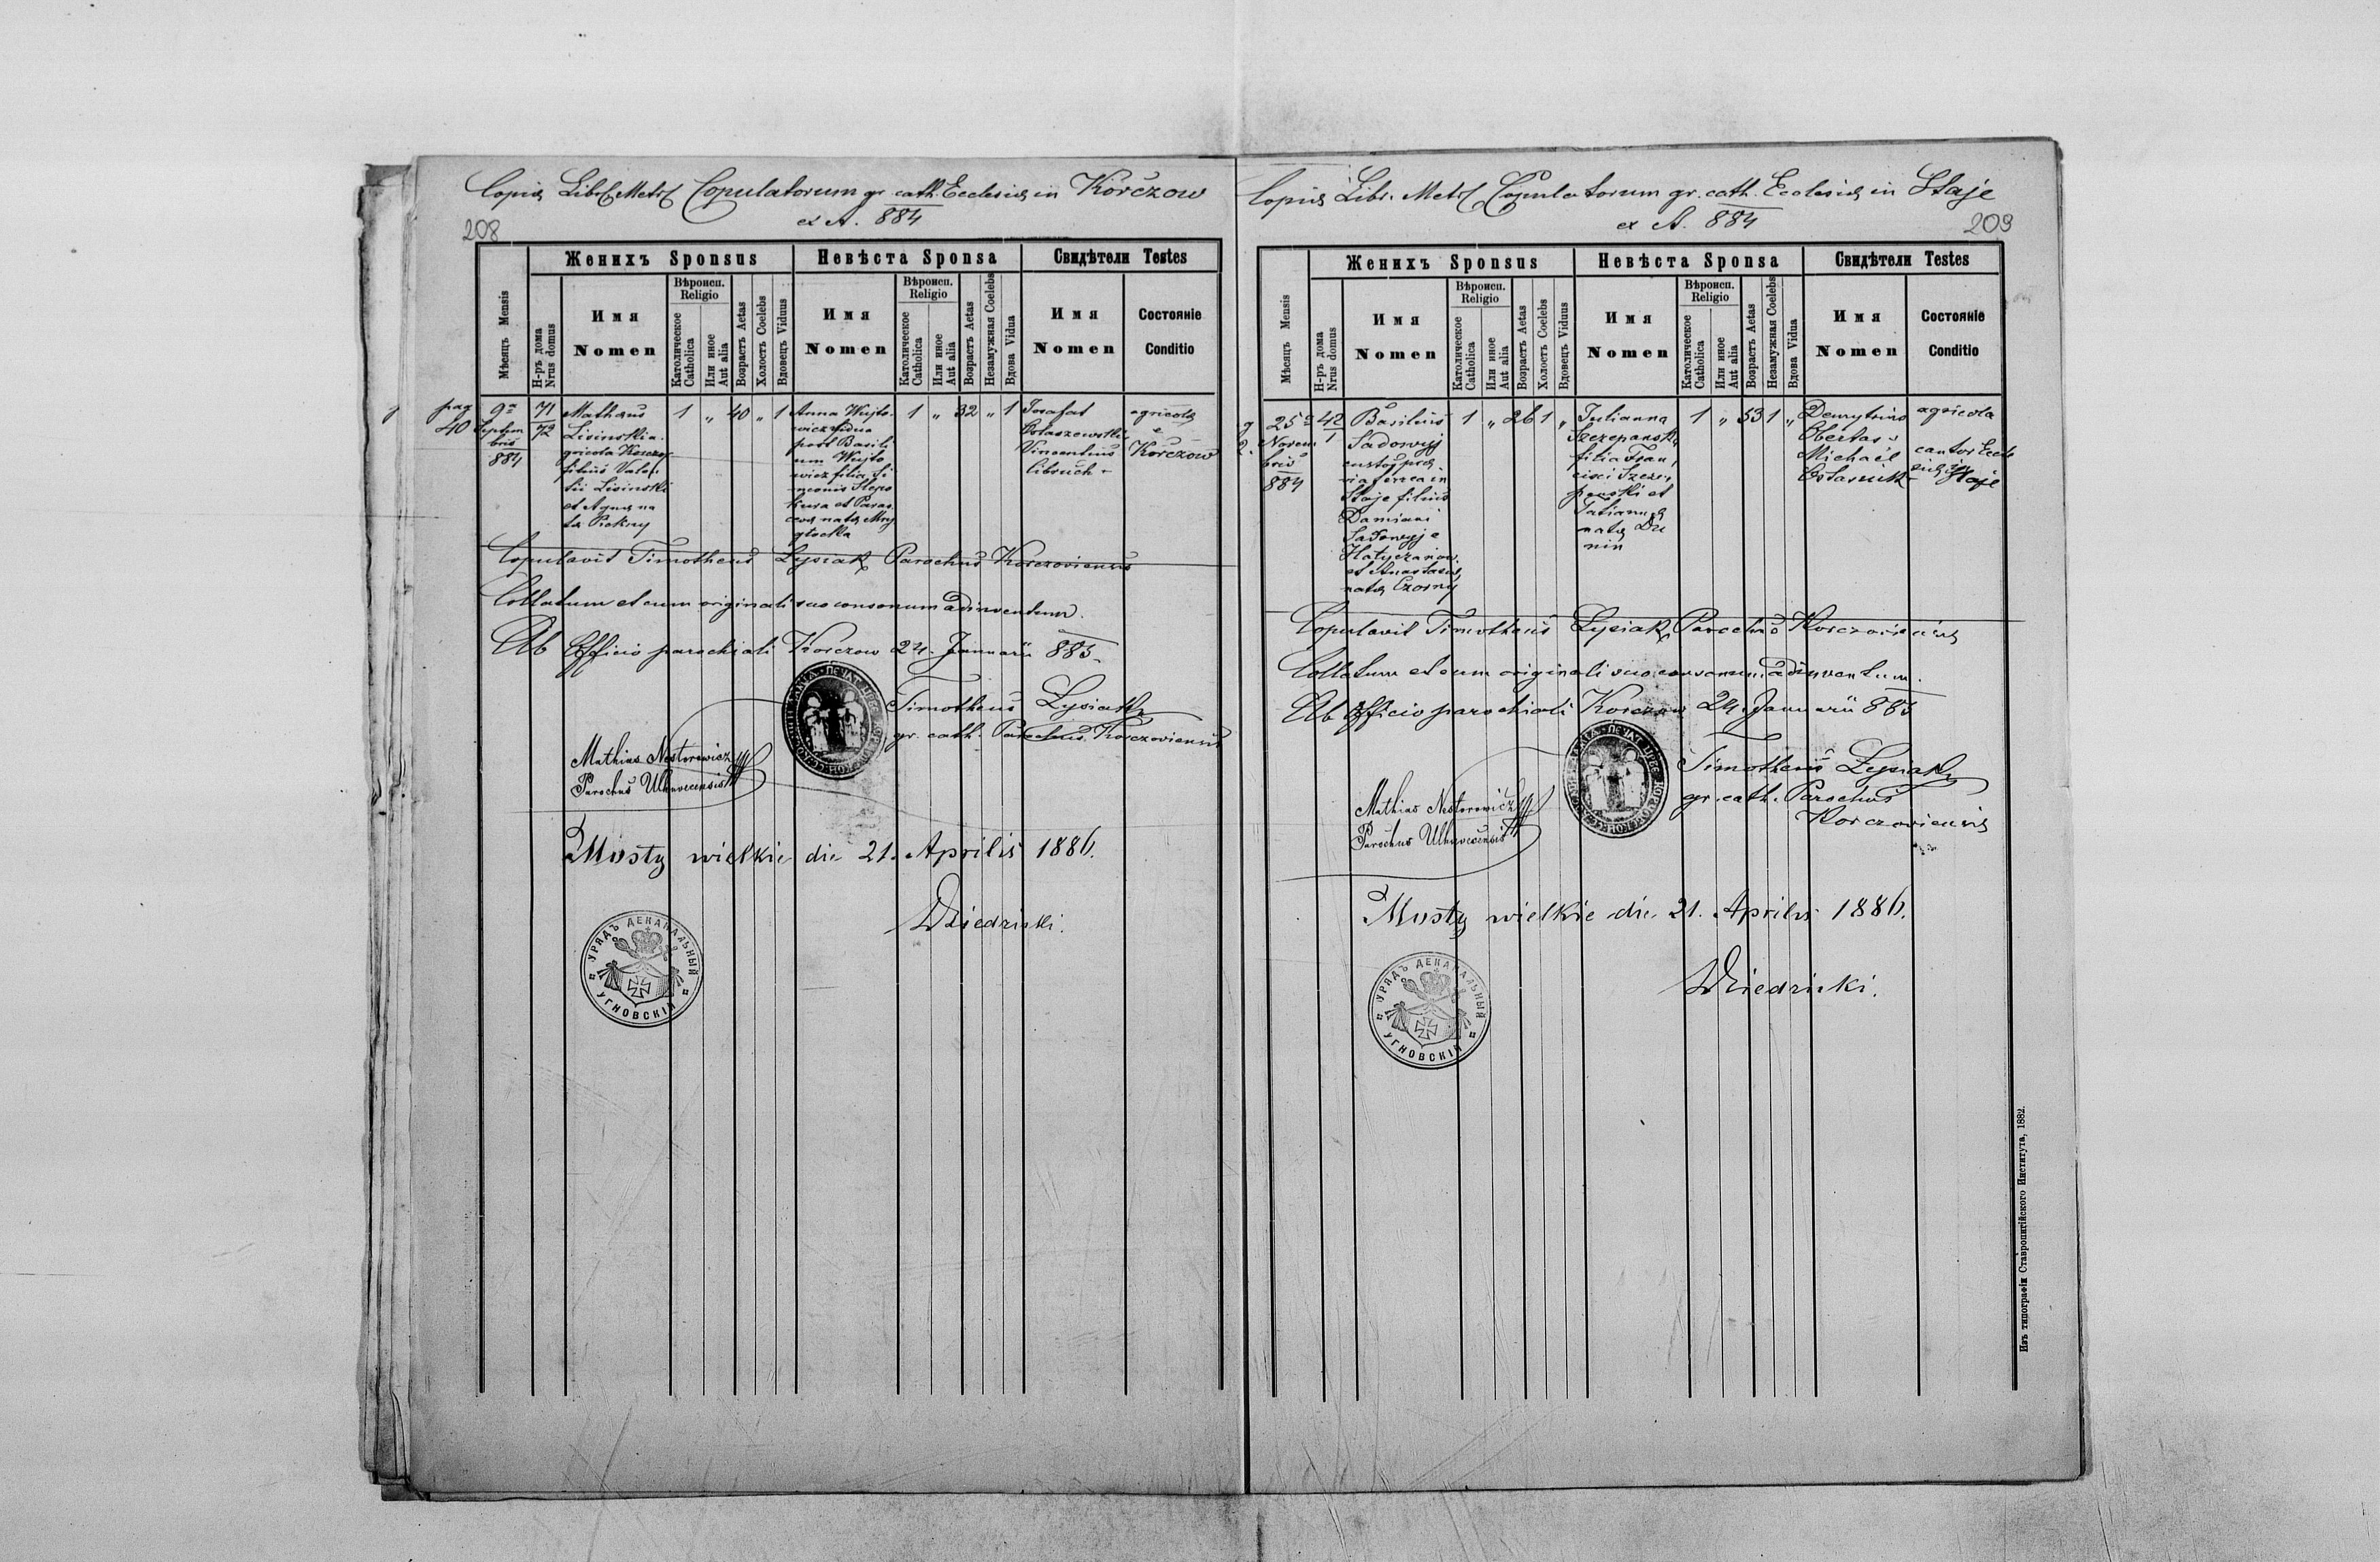 Copia Libr. Metr. Copulatorum gr. cath. Ecclesiæ in Korczow
ex A. 884
208
Женихъ Sponsus
Невѣста Sponsa
Свидѣтели Testes
Мѣсяцъ Mensis
Н-ръ дома Nrus domus
Имя
Nomen
Вѣроисп.
Religio
Католическое Catholica
Или иное Aut alia
Возрастъ Aetas
Холостъ Coelebs
Вдовецъ Viduus
Имя
Nomen
Вѣроисп.
Religio
Католическое Catholica
Или иное Aut alia
Возрастъ Aetas
Незамужная Coelebs
Вдова Vidua
Имя
Nomen
Состоянiе
Conditio
pag
40
9a
Septem
bris
884
71
72
Mathæus
Lisinski a-
gricola Korczow
filius Valen
tii Lisinski
et Agnæ na
tæ Piekny
1 „ 40 „ 1
Anna Wujto-
wicz vidua
post Basili
um Wujto
wicz filia Si
meonis Slepo
kura et Paras
cevæ natæ
1 „ 32 „ 1
Josafat
Vincentius
agricolæ
e
Korczow
Copulavit Timotheus Lysiak Parochus Korczoviensis
Collatum et cum originali suo consonum adinventum.
Ab Officio parochiali Korczow 24. Januarii 885.
Timotheus Lysiak
gr. cath. Parochus Korczoviensis
Mathias Nestorowicz
Parochus Ulhuvecensis
Mosty wielkie die 21. Aprilis 1886.
Dziedzicki.
УРЯДЪ ДЕКАНАЛЬНЫЙ
УГНОВСКIЙ
Copia Libr. Metr. Copulatorum gr. cath. Ecclesiæ in Staje
ex A. 884
209
Женихъ Sponsus
Невѣста Sponsa
Свидѣтели Testes
Мѣсяцъ Mensis
Н-ръ дома Nrus domus
Имя
Nomen
Вѣроисп.
Religio
Католическое Catholica
Или иное Aut alia
Возрастъ Aetas
Холостъ Coelebs
Вдовецъ Viduus
Имя
Nomen
Вѣроисп.
Religio
Католическое Catholica
Или иное Aut alia
Возрастъ Aetas
Незамужная Coelebs
Вдова Vidua
Имя
Nomen
Состоянiе
Conditio
25a
Novem
bris
884
42
1
Basilius
Sadowyj
custos præ
via ferrea in
Staje filius
Damiani
Sadowyj e
et Anastasiæ
natæ Czorny
1 „ 26 1 „
Julianna
Szczepanski
filia Fran
cisci Szcze
panski et
Tatiannæ
natæ Du
nin
1 „ 53 1 „
Demytrius
Obertas
Michaël
Ostasiuk
agricola
cantor Eccle
siæ in Staje
Copulavit Timotheus Lysiak Parochus Korczoviensis
Collatum et cum originali suo consonum adinventum.
Ab Officio parochiali Korczow 24. Januarii 885
Timotheus Lysiak
gr. cath. Parochus
Korczoviensis
Mathias Nestorowicz
Parochus Ulhuvecensis
Mosty wielkie die 21. Aprilis 1886.
Dziedzicki.
УРЯДЪ ДЕКАНАЛЬНЫЙ
УГНОВСКIЙ
Изъ типографiи Ставропигiйского Института, 1882.